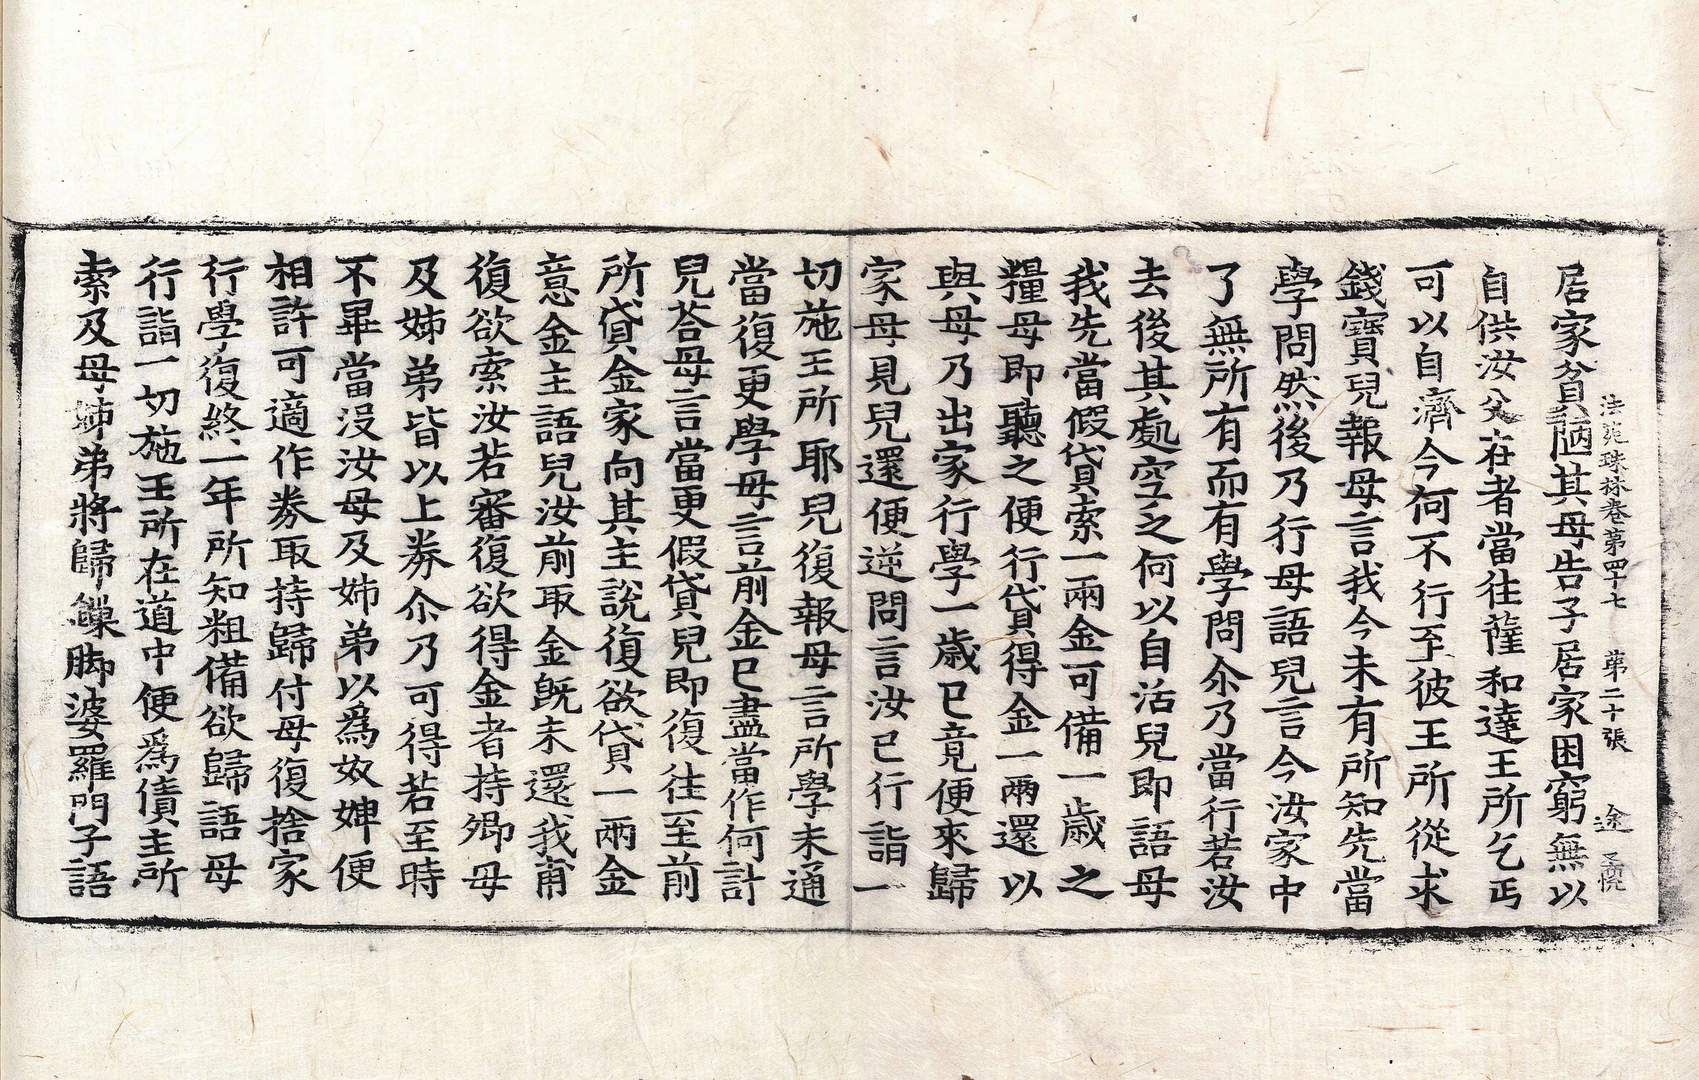 法苑珠林卷第四十七 第二十張 途
居家貧陋其母告子居家困窮無以
自供汝父在者當往薩和達王所乞丐
可以自濟今何不行至彼王所從求
錢寶兒報母言我今未有所知先當
學問然後乃行母語兒言今汝家中
了無所有而有學問尒乃當行若汝
去後其處空乏何以自活兒即語母
我先當假貸索一兩金可備一歲之
糧母即聽之便行貸得金一兩還以
與母乃出家行學一歲已竟便來歸
家母見兒還便逆問言汝已行詣一
切施王所耶兒復報母言所學未通
當復更學母言前金已盡當作何計
兒荅母言當更假貸兒即復往至前
所貸金家向其主說復欲貸一兩金
意金主語兒汝前取金旣未還我甫
復欲索汝若審復欲得金者持卿母
及姊弟皆以上券尒乃可得若至時
不畢當沒汝母及姊弟以爲奴婢便
相許可適作券取持歸付母復捨家
行學復終一年所知粗備欲歸語母
行詣一切施王所在道中便爲債主所
索及母姊弟將歸鏁脚婆羅門子語